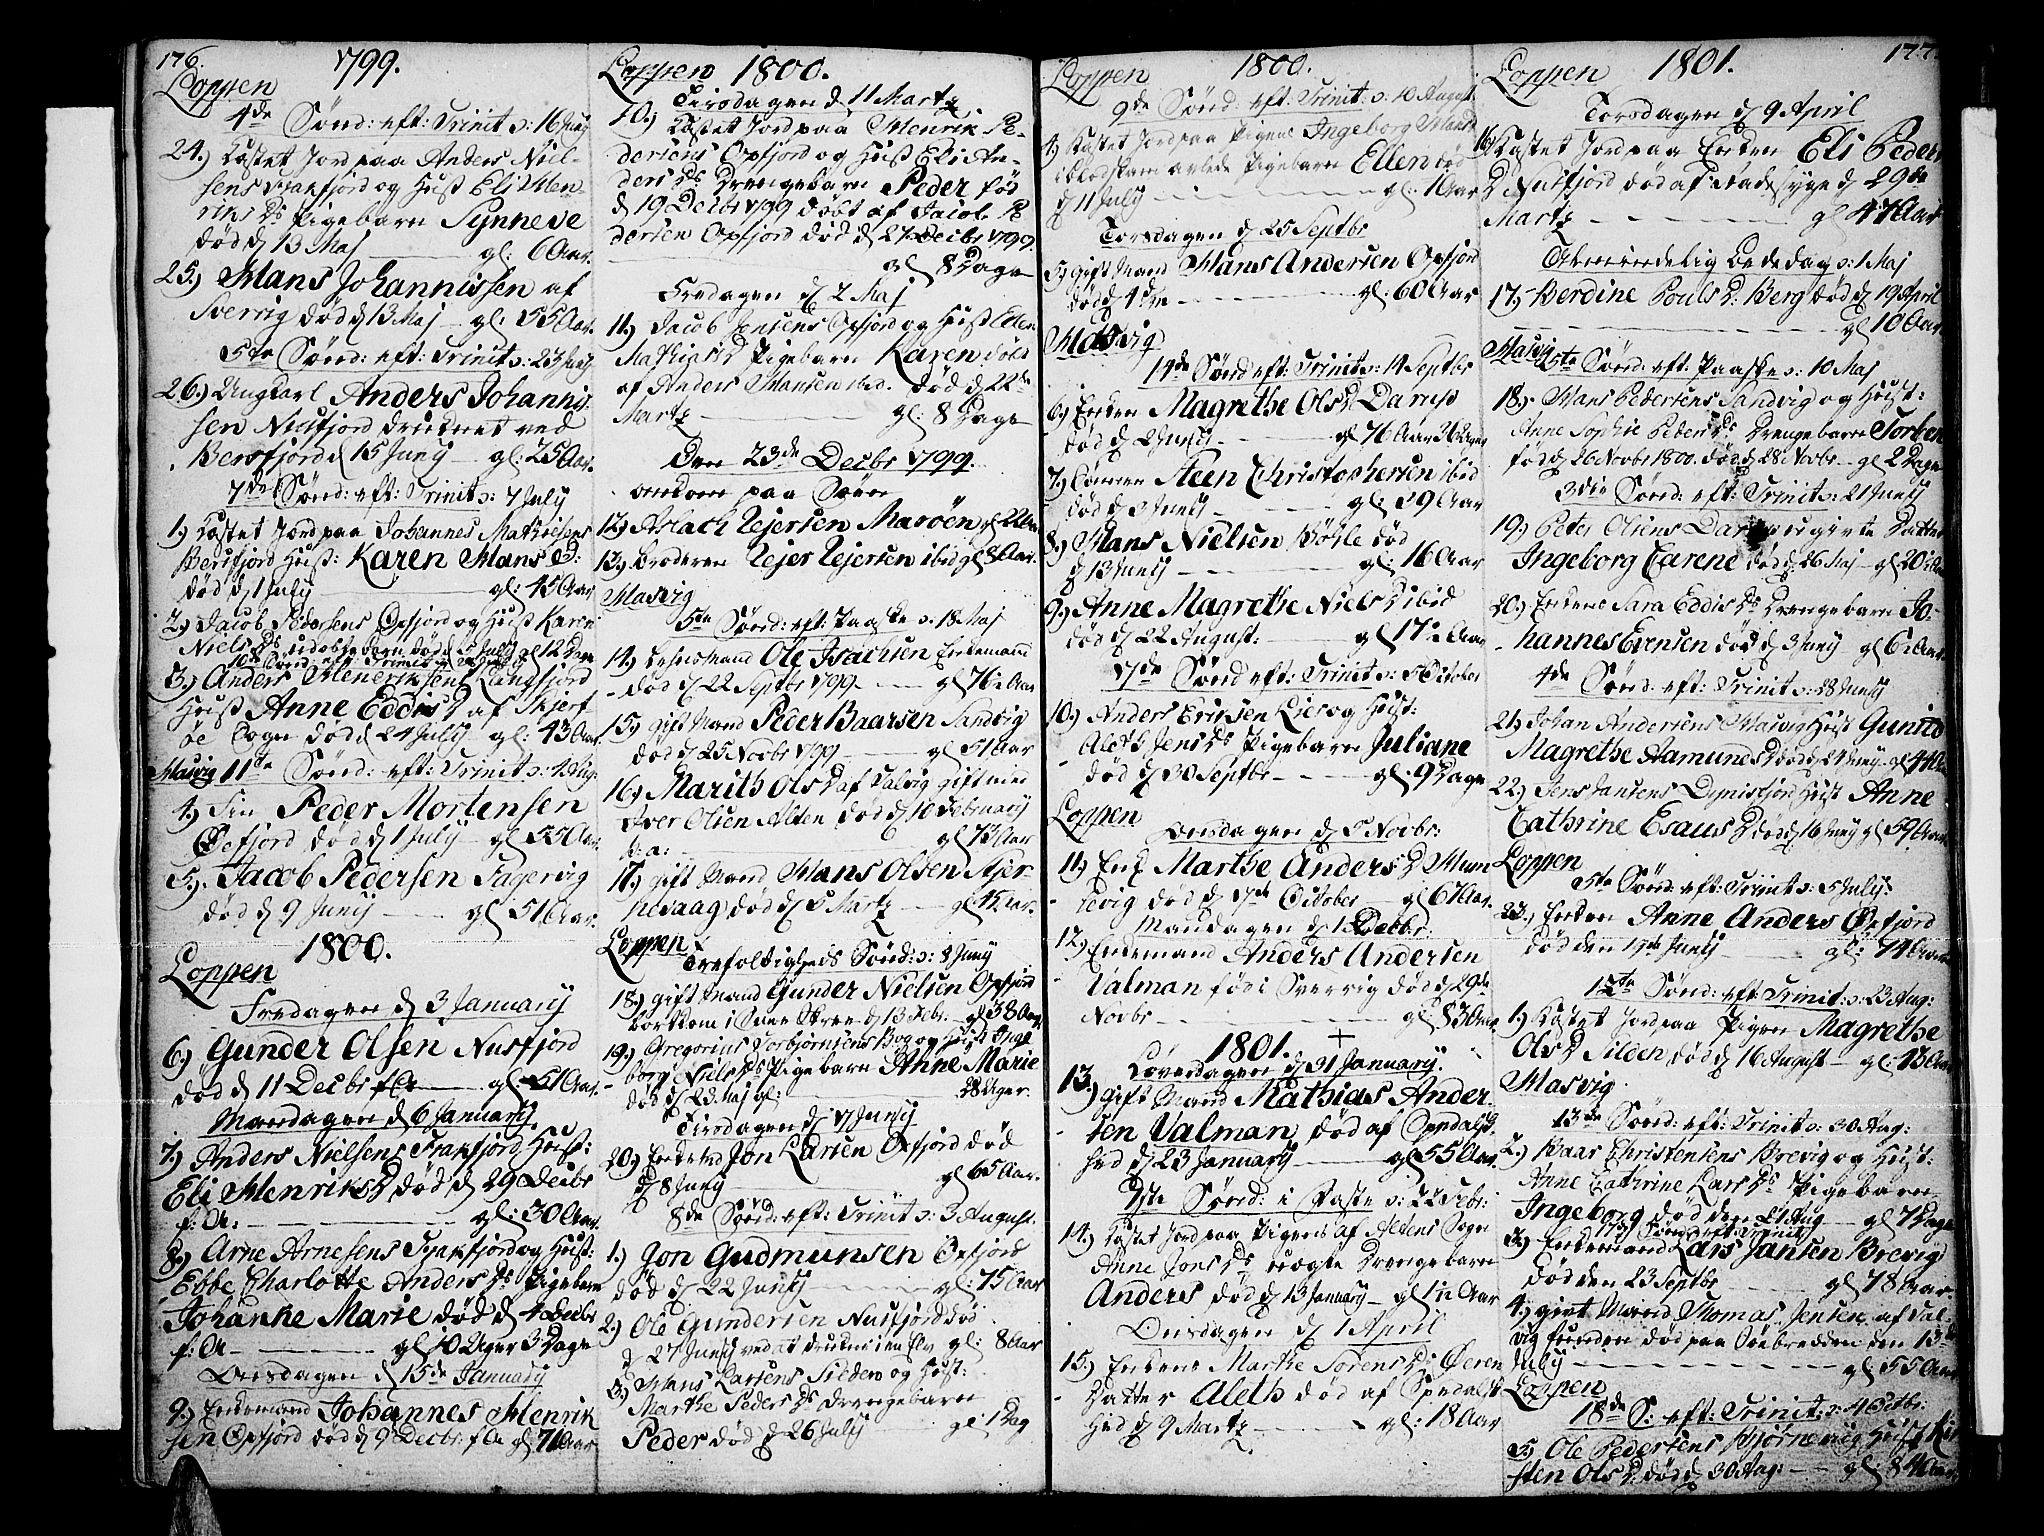 176.
1799.
Loppen
4de Sönd: eft: Trinit: ɔ: 16 Juny
24.) Kastet Jord paa Anders Niel-
sens Frakfjord og Hust Eli Hen-
riks Ds Pigebarn Synneve
död d 13 Maj gl: 6 Aar.
25.) Hans Johannissen af
Sverrig död d 13 Maj gl: 55 Aar.
5te Sönd: eft: Trinit ɔ: 23 Juny
26.) Ungkarl Anders Johannis-
sen Nusfjord druknet ved
Bersfjord d 15 Juny gl: 25 Aar.
7de Sönd: eft: Trinit ɔ: 7 July
1.) Kastet Jord paa Johannes Mathiesens
Bersfjord Hust: Karen Hans D:
död d 1 July gl: 45 Aar
2.) Jacob Pedersens Opfjord og Hust Karen
Niels Ds udöbte barn död d 5 July gl 12 Dage
10de Sönd: eft: Trinit ɔ: 28 July
3.) Anders Henriksens Langfjord
Hust Anne Eddis D af Skjert
öe Sogn död d 24 July gl: 43 Aar
Masvig 11te Sönd: eft: Trinit ɔ: 4 Aug:
4.) Fin Peder Mortensen
Öefjord död d 1 July gl: 55 Aar.
5.) Jacob Pedersen Fagervig
död d 9 Juny gl 51 Aar.
1800.
Loppen
Fredagen d 3 January
6.) Gunder Olsen Nusfjord
död d 11 Decbr f. A gl 51 Aar.
Mandagen d 6 January
7.) Anders Nielsens Frakfjord Hust:
Eli Henriks D död d 29 Decbr
f: A: gl: 30 Aar.
8.) Arne Arnesens Frakfjord og Hust:
Ebbe Charlotte Anders Ds Pigebarn
Johanne Marie död d 4 Decbr
f: A gl 10 Uger 3 Dage
Onsdagen d 15de January
9.) Enkemand Johannes Henrik
sen Opfjord död d 9 Decbr f. A gl 71 Aar
Loppen 1800.
Tirsdagen d 11 Martz
10.) Kastet Jord paa Henrik Pe-
dersens Opfjord og Hust Eli An-
ders Ds Drengebarn Peder föd
d 19 Decbr 1799 döbt af Jacob Pe
dersen Opfjord död d 27 Decbr 1799
gl 8 Dage
Fredagen d 2 Maj
11.) Jacob Jensens Opfjord og Hust Ellen
Mathias D Pigebarn Karen döbt
af Anders Hansen ibid. död d 22de
Martz gl: 8 Dage
Den 23de Decbr 1799.
omkom paa Söen
12.) Aslach Tejersen Maröen gl 22 Aar
13.) Broderen Tejer Tejersen ibid gl 8 Aar.
Masvig
5te Sönd: eft: Paaske ɔ: 18 Maj
14.) Lehnsmand Ole Isachsen Enkemand
död d 22 Septbr 1799 gl 76 Aar
15.) gift Mand Peder Baarsen Sandvig
död d 25 Novbr 1799 gl 51 Aar
16.) Marith Ols D af Talvig gift med
Iver Olsen Alten död d 10 February
h: a: gl 73 Aar
17.) gift Mand Hans Olsen Ajer-
nesaag död d 5 Martz gl 45 Aar.
Loppen
Trefoltigheds Sönd: ɔ: 8 Juny
18.) gift Mand Gunder Nielsen Opfjord
bortkom i Snee Skree d 13 Febr. gl 38 Aar
19.) Gregorius Torbjörnsens Bog og Hust Inge
borg Niels Ds Pigebarn Anne Marie
död d 23 Maj gl: 28 Uger.
Tirsdagen d 17 Juny
20.) Enkemd Jon Larsen Opfjord död
d 8 Juny gl 65 Aar.
8de Sönd: eft: Trinit ɔ: 3 August.
1.) Jon Gudmunsen Opfjord
död d 22 Juny gl: 75 Aar
2.) Ole Gundersen Nusfjord död
d 27 Juny ved at drukne i en Elv gl: 8 Aar
3.) Hans Larsens Silden og Hust:
Marthe Peders Ds Drengebarn
Peder död d 26 July gl 1 Dag
Loppen 1800.
9de Sönd: eft: Trinit: ɔ: 10 August.
4.) Kastet Jord paa Pigens Ingeborg Hans D
i blodskam avlede Pigebarn Ellen död
d 11 July gl: 1 Aar
Torsdagen d 25 Septbr
5.) gift Mand Hans Andersen Opfjord
död d 4de gl: 60 Aar
Masvig
14de Sönd eft: Trinit ɔ: 14 Septbr
6.) Enken Magrethe Ols D Darup
död d 2 Juny gl 76 Aar 36 Uger
7.) Sönnen Steen Christophersen ibid
död d 3 Juny gl: 39 Aar
8.) Hans Nielsen Böhle död
d 13 Juny gl: 16 Aar
9.) Anne Magrethe Niels D ibid
död d 22 August: gl 17½ Aar
17de Sönd eft: Trinit ɔ: 5 October
10.) Anders Ericksen Lies og Hust:
Aleth Jens Ds Pigebarn Juliane
död d 30 Septbr gl: 9 Dage
Loppen
Onsdagen d 5 Novbr:
11.) Enk Marthe Anders D Mun
kevig död d 17de October gl 67 Aar.
Mandagen d 1 Decbr:
12.) Enkemand Anders Andersen
Valman föd i Sverrig död d 29de
Novbr gl: 83 Aar
1801.
Löverdagen d 31 January.
13.) gift Mand Mathias Ander-
sen Valman död af Spedalsk-
hed d 23 January gl 55 Aar.
1ste Sönd: i Faste ɔ: 22 Febr:
14.) Kastet Jord paa Pigens af Altens Sogn
Anne Jons Ds uægte Drengebarn
Anders död d 13 January gl 1½ Aar
Onsdagen d 1 April
15.) Enkens Marthe Sörens Ds Öeren
Datter Aleth död af Spedalsk
hed d 9 Martz gl: 18 Aar
Loppen 1801. 177.
Torsdagen d 9 April
16.) Kastet Jord paa Enken Eli Peders
D Nusfjord död af Stads syge d 29de
Martz gl 47 Aar
Almindelig bededag ɔ: 1 Maj
17.) Berdine Pouls D Berg död d 19 April
gl 10 Aar
Masvig 5te Sönd: eft: Paaske ɔ: 10 Maj
18.) Hans Pedersens Sandvig og Hust:
Anne Sophie Peders Ds Drengebarn Torben
föd d 26 Novbr 1800. död d 28 Novbr gl 2 Dage
3die Sönd: eft: Trinit ɔ: 21 Juny
19.) Peter Olsens Darup ugivte Datter
Ingeborg Carene död d 26 Maj gl 20 Aar
20.) Enkens Sara Eddis Ds Drengebarn Jo-
hannes Evensen död d 3 Juny gl 6 Aar
4de Sönd: eft: Trinit ɔ: 28 Juny
21.) Johan Andersens Masvig Hust Gunild
Magrethe Aamunds D död d 24 Juny gl 44 Aar
22.) Jens Hansens Dynistjord Hust Anne
Cathrine Esaus D död d 16 Juny gl 59 Aar
Loppen
5te Sönd: eft: Trinit ɔ: 5 July
23.) Enken Anne Anders Öxfjord
död den 17de Juny gl: 74 Aar
12te Sönd: eft: Trinit: ɔ: 23 Aug:
1.) Kastet Jord paa Pigen Magrethe
Ols D Silden död d 16 August gl: 13 Aar
Masvig.
13de Sönd: eft: Trinit ɔ: 30 Aug:
2.) Baar Christensens Brevig og Hust:
Anne Cathrine Lars Ds Pigebarn
Ingeborg död den 21 Aug gl 7 Dage
17de Sönd: eft: Trinit:
3.) Enkemand Lars Jansen Brevig
död den 23 Septbr gl 78 Aar
4.) givt Mand Thomas Jensen af Tal-
vig funden död paa Söebredden den 13de
July gl 55 Aar
Loppen
18de S: eft: Trinit: ɔ: 4 Octbr:
5.) Ole Pedersens Bjørnevig Hust Kir
sten Ols D. död d 30 Aug: gl: 84 Aar